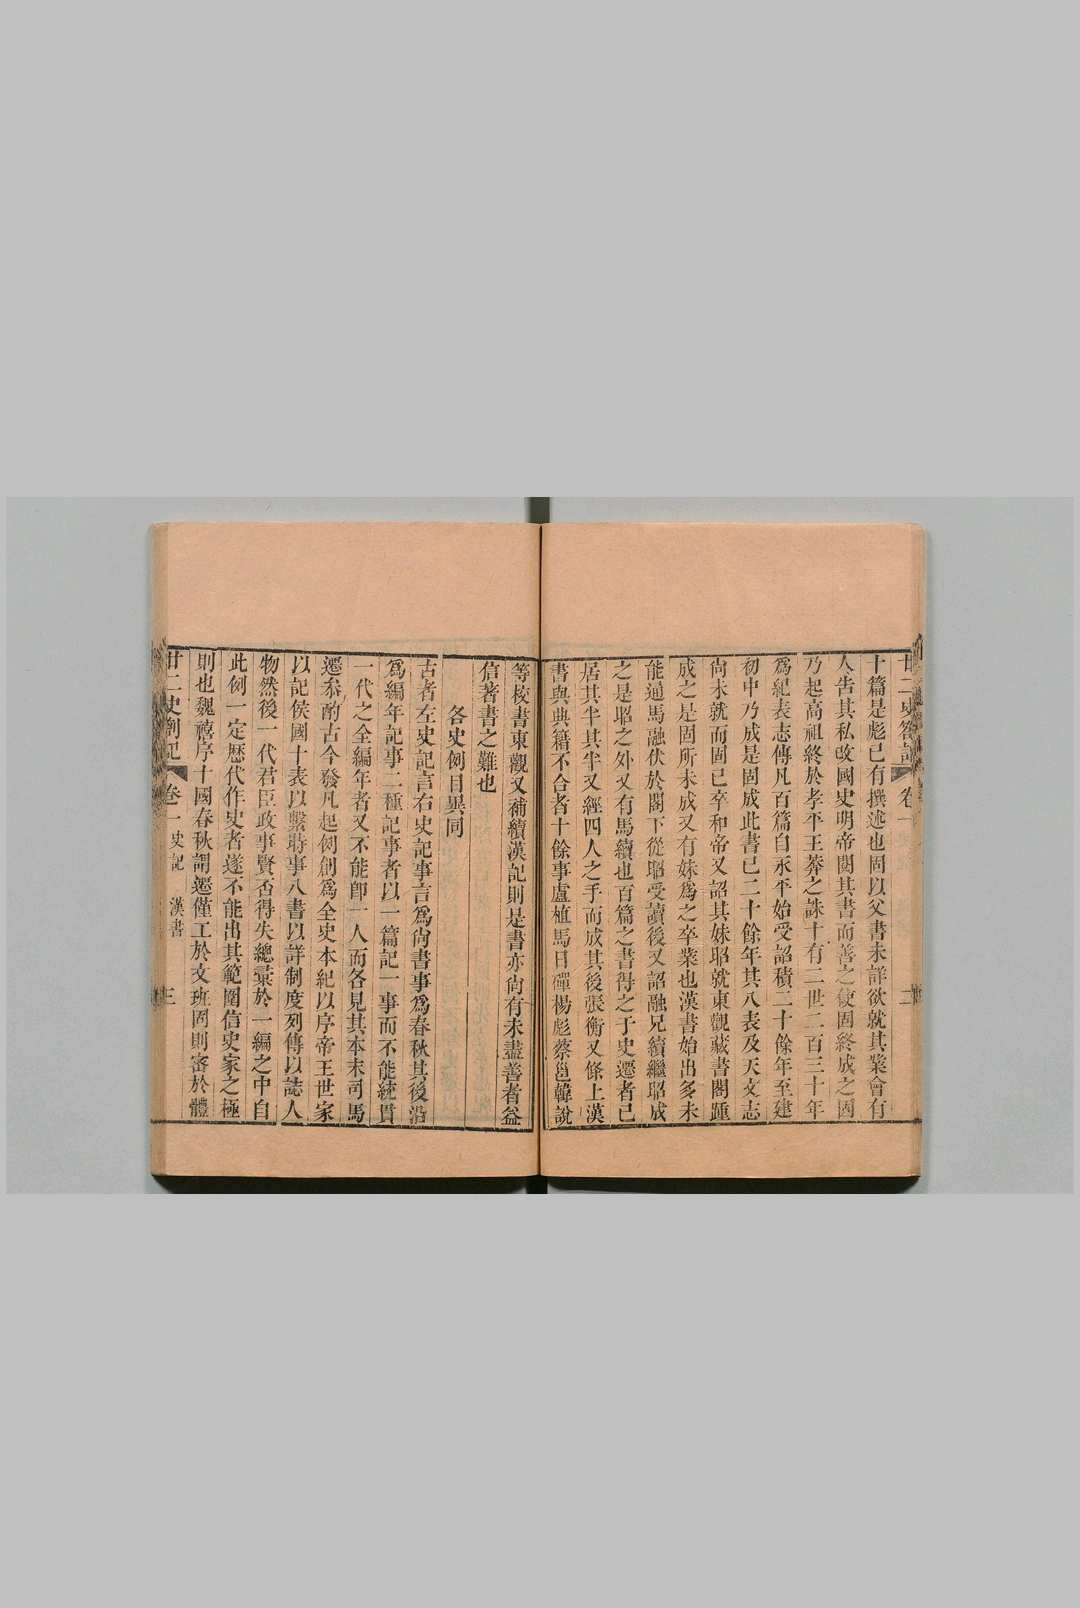 廿二史劄記 卷一 二
十篇是彪已有撰述也固以父書未詳欲就其業會有
人告其私改國史明帝閱其書而善之使固終成之固
乃起高祖終於孝平王莽之誅十有二世二百三十年
爲紀表志傳凡百篇自永平始受詔積二十餘年至建
初中乃成是固成此書已二十餘年其八表及天文志
尙未就而固已卒和帝又詔其妹昭就東觀藏書閣踵
成之是固所未成又有妹爲之卒業也漢書始出多未
能通馬融伏於閣下從昭受讀後又詔融兄續繼昭成
之是昭之外又有馬續也百篇之書得之于史遷者已
居其半其半又經四人之手而成其後張衡又條上漢
書與典籍不合者十餘事盧植馬日磾楊彪蔡邕韓說
等校書東觀又補續漢記則是書亦尙有未盡善者益
信著書之難也
各史例目異同
古者左史記言右史記事言爲尙書事爲春秋其後沿
爲編年記事二種記事者以一篇記一事而不能統貫
一代之全編年者又不能卽一人而各見其本末司馬
遷參酌古今發凡起例創爲全史本紀以序帝王世家
以記侯國十表以繫時事八書以詳制度列傳以誌人
物然後一代君臣政事賢否得失總彙於一編之中自
此例一定歷代作史者遂不能出其範圍信史家之極
則也魏禧序十國春秋謂遷僅工於文班固則密於體
廿二史劄記 卷一 史記 漢書 三